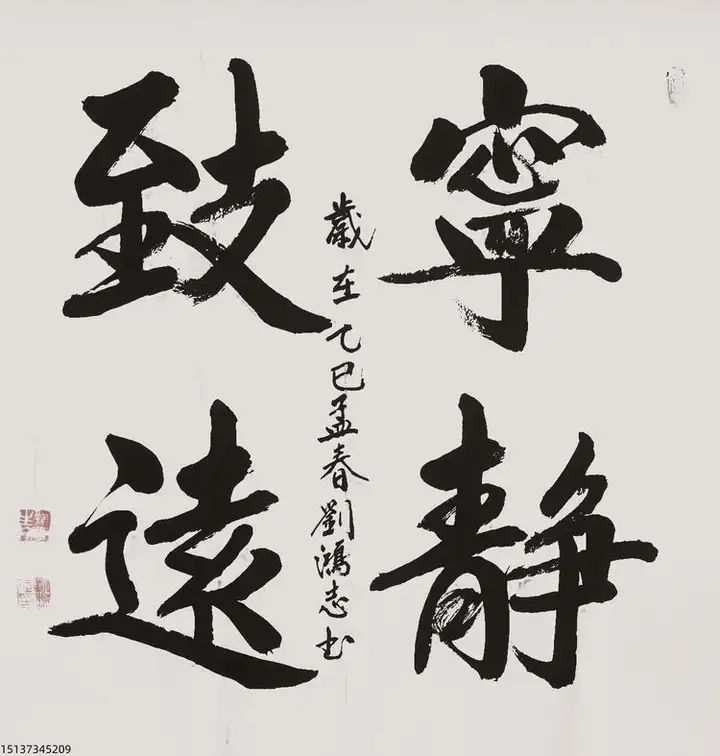 寧靜
致遠
歲在乙巳孟春劉鴻志书
15137345209